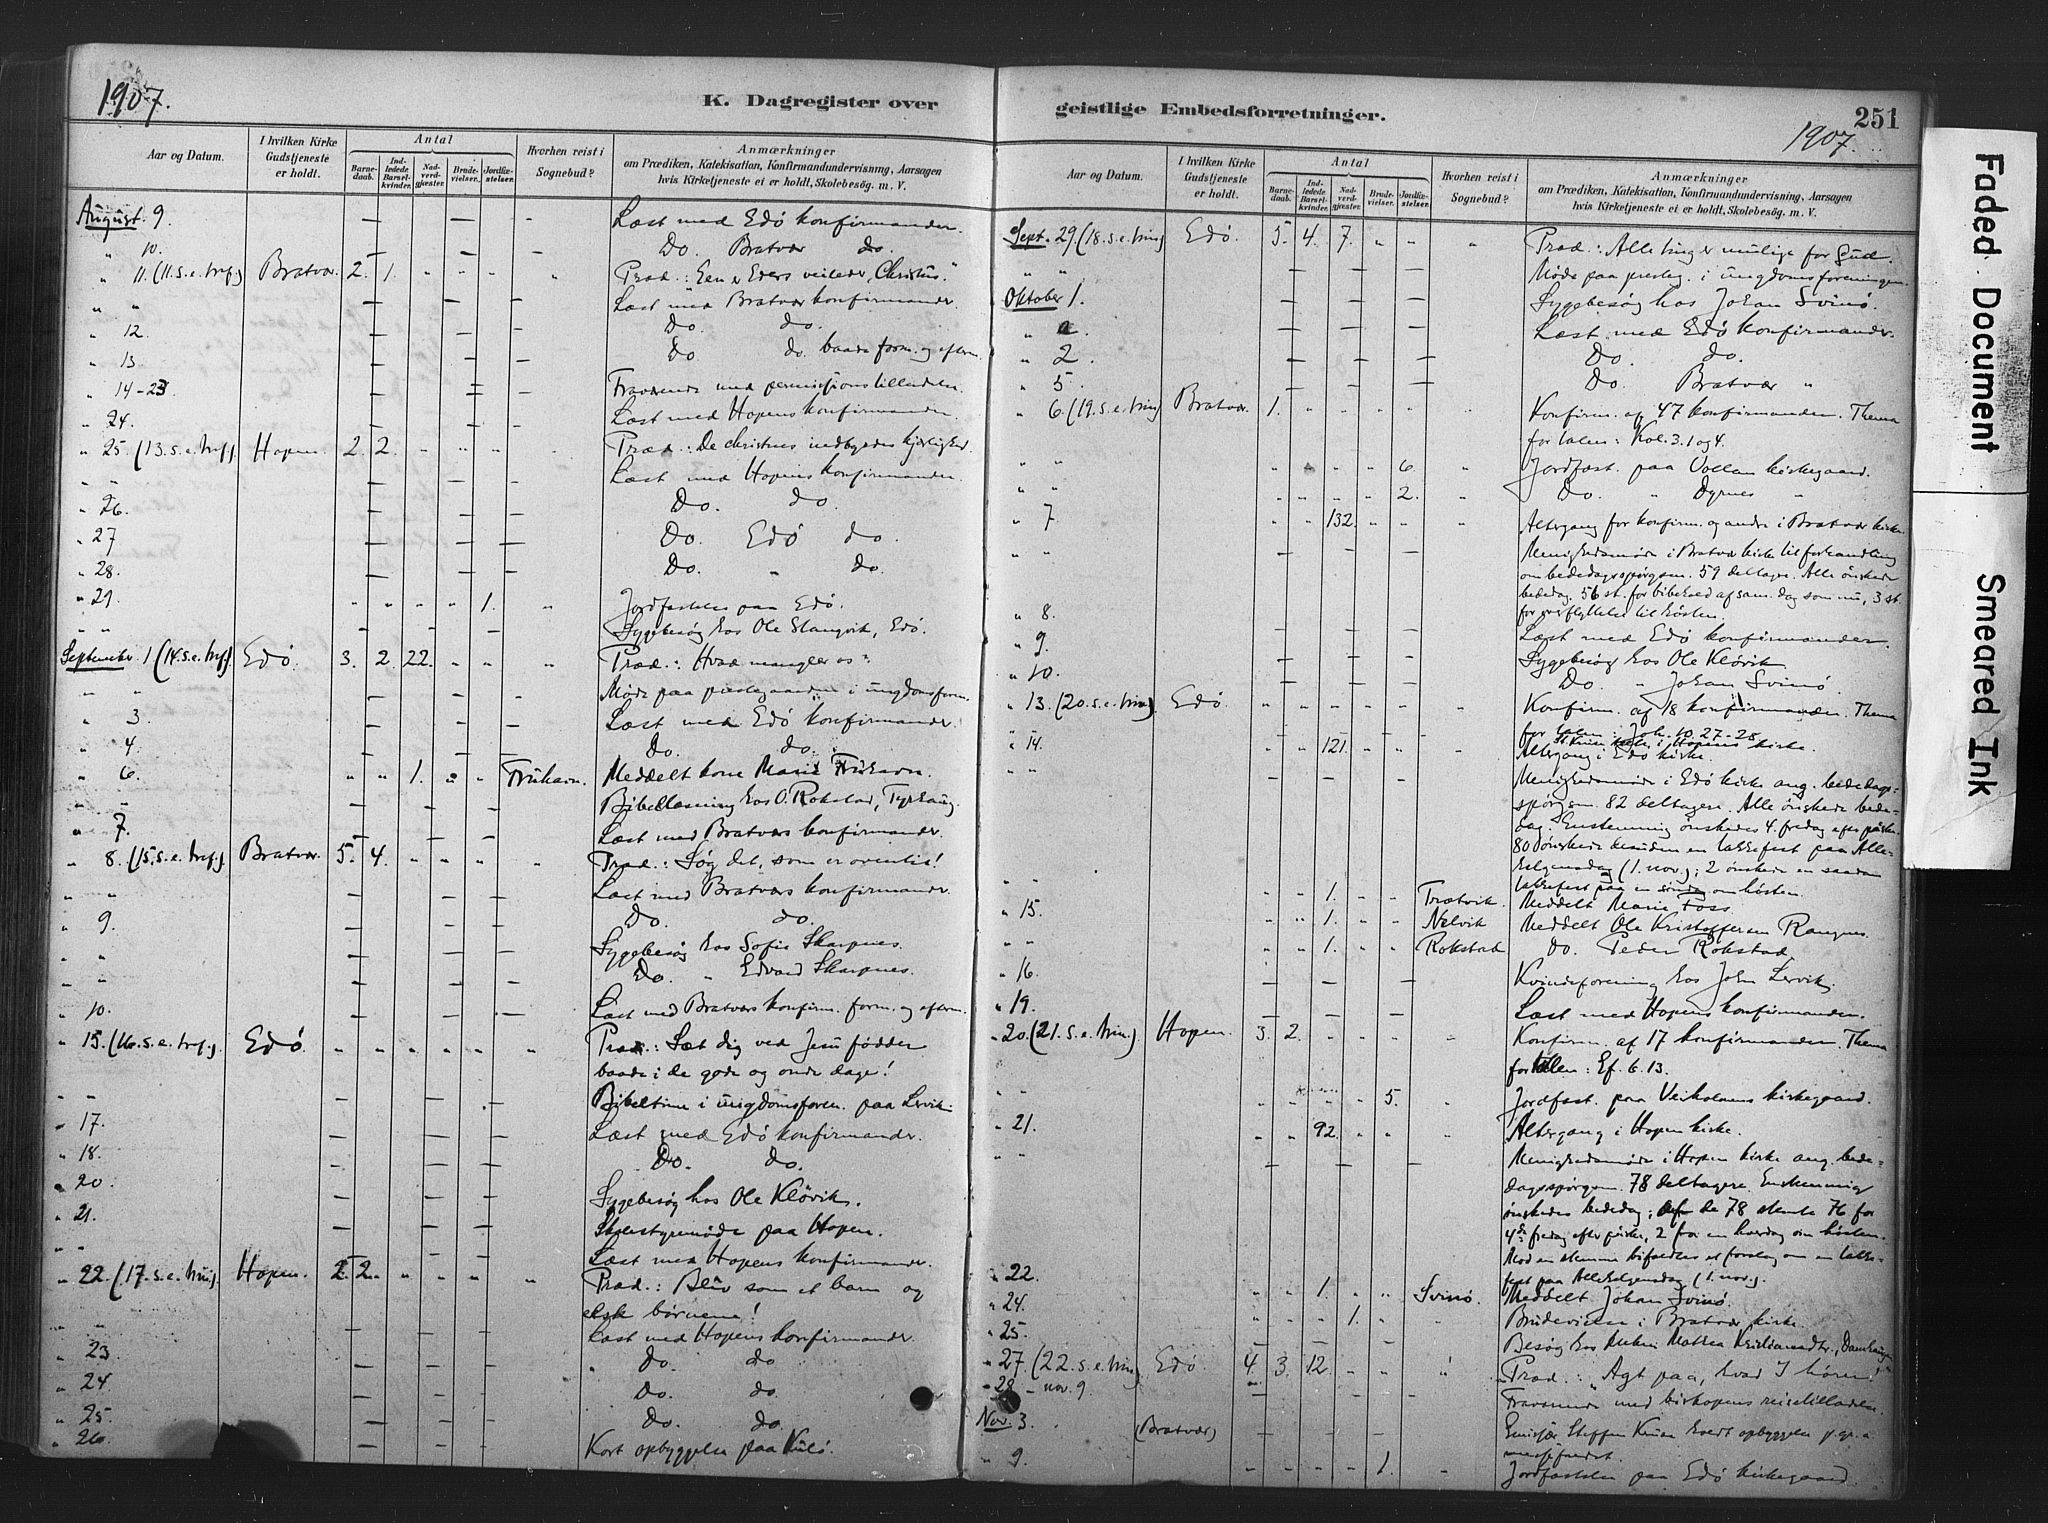 1907.
K. Dagregister over
Aar og Datum.
I hvilken Kirke Gudstjeneste er holdt.
Antal
Barne-daab.
Ind-ledede Barsel-kvinder.
Nad-verd-gjester.
Brude-vielser.
Jordfæ-stelser.
Hvorhen reist i Sognebud?
Anmærkninger
om Prædiken, Katekisation, Konfirmandundervisning, Aarsagen
hvis Kirketjeneste ei er holdt, Skolebesøg. m. V.
August 9. — — — Læst med Edø konfirmander.
" 10. — — — Do. Bratvær do.
" 11. (11. s. e. tref.) Bratvær. 2. 1. " " " " Præd.: Een er Eders veileder, Christus."
" " — — — Læst med Bratvær konfirmander.
" 12 — — — Do. do.
" 13 — — — Do. do. baade form. og efterm.
" 14-23 — — — Fraværende med permissionstilladelse.
" 24. — — — Læst med Hopens konfirmander.
" 25. (13. s. e. tref.) Hopen. 2. 2. " " " " Præd.: De christnes indbyrdes kjærlighed.
" " — — — Læst med Hopens konfirmander.
" 26. — — — Do. do.
" 27 — — — Do. Edø do.
" 28. — — — Do. " do.
" 29. " " " " 1. " Jordfæstelse paa Edø.
" " — — — Sygebesøg hos Ole Slangvik, Edø.
September 1 (14. s. e. tref.) Edø. 3. 2. 22. " " " Præd.: Hvad mangler os?
" " — — — Møde paa prestegaarden i ungdomsforen.
" 3. — — — Læst med Edø konfirmander.
" 4. — — — Do. do.
" 6. " " 1. " " Fruhavn. Meddelt kone Marie Fruhavn.
" " — — — Bibellæsning hos O. Rokstad, Tyrhaug.
" 7. — — — Læst med Bratværs konfirmander.
" 8. (15. s. e. tref.) Bratvær. 5. 4. " " " " Præd.: Søg det, som er oventil!
" " — — — Læst med Bratværs konfirmander.
" 9. — — — Do. do.
" " — — — Sygebesøg hos Sofie Skarpnes.
" " — — — Do. " Edvard Skarpnes.
" 10. — — — Læst med Bratværs konfirm. form. og efterm.
" 15. (16. s. e. tref.) Edø. " " " " " " Præd.: Sæt dig ved Jesu fødder
baade i de gode og onde dage!
" " — — — Bibeltime i ungdomsforen. paa Lervik.
" 17. — — — Læst med Edø konfirmander.
" 18. — — — Do. do.
" 20. — — — Sygebesøg hos Ole Kløvik.
" 21. — — — Skolestyremøde paa Hopen.
" " — — — Læst med Hopens konfirmander.
" 22. (17. s. e. trin.) Hopen. 2. 2. " " " " Præd.: Bliv som et barn og
elsk børnene!
" " — — — Læst med Hopens konfirmander.
" 23 — — — " Do. do
" 24 — — — Do. do.
" 25. — — — Do. do.
" 26. — — — Kort opbyggelse paa Kulø.
geistlige Embedsforretninger.
251
1907.
Aar og Datum.
I hvilken Kirke Gudstjeneste er holdt.
Antal
Barne-daab.
Ind-ledede Barsel-kvinder.
Nad-verd-gjester.
Brude-vielser.
Jordfæ-stelser.
Hvorhen reist i Sognebud?
Anmærkninger
om Prædiken, Katekisation, Konfirmandundervisning, Aarsagen
hvis Kirketjeneste ei er holdt, Skolebesøg. m. V.
Sept. 29. (18. s. e. trin.) Edø. 5. 4. 7. " " " Præd.: Alle ting er mulige for Gud.
" " — — — Møde paa presteg. i ungdomsforeningen.
Oktober 1. — — — Sygebesøg hos Johan Svinø.
" — — — Læst med Edø konfirmander.
" 2. — — — Do. do.
" 5. — — — Do. Bratvær "
" 6. (19. s. e. trin) Bratvær. 1. " " " " " Konfirm. af 47 konfirmander. Thema
for talen: Kol. 3. 1 og 4.
" " " " " " 6. " Jordfæst. paa Vollan kirkegaard.
" " " " " " 2. " Do. " Dyrnes "
" 7. " " 132. " " " Altergang for konfirm. og andre i Bratvær kirke.
" " — — — Menighedsmøde i Bratvær kirke til forhandling
om bededagsspørgsm. 59 deltagere. Alle ønskede
bededag. 56 st. for bibehold af sam. dag som nu, 3 st.
for overflyttelse til høsten.
" 8. — — — Læst med Edø konfirmander.
" 9. — — — Sygebesøg hos Ole Kløvik
" 10. — — — Do. " Johan Svinø.
" 13. (20. s. e. trin) Edø. " " " " " " Konfirm. af 18 konfirmander. Thema
for talen: Joh. 10. 27-28.
" 14. " " 121. " " " Altergang i Edø kirke.
" " — — — Menighedsmøde i Edø kirke ang. bededags-
spørgsm. 82 deltagere. Alle ønskede bede-
dag. Enstemmig ønskedes 4. fredag efter paaske.
80 ønskede desuden en takkefest paa Alle-
helgensdag (1. nov.); 2 ønskede en saadan
takkefest paa en søndag om høsten.
" " " " 1. " " Trætvik. Meddelt Marie Foss.
" 15. " " 1. " " Nelvik Meddelt Ole Kristoffersen Rangnes.
" " " " 1. " " Rokstad Do. Peder Rokstad.
" 16. — — — Kvindeforening hos John Lervik.
" 19. — — — Læst med Hopens konfirmander.
" 20. (21. s. e. trin.) Hopen. 3. 2. " " " " Konfirm. af 17 konfirmander. Thema
for talen: Ef. 6. 13.
" " " " " " 5. " Jordfæst. paa Veiholmens kirkegaard.
" 21. " " 92. " " " Altergang i Hopen kirke.
" " — — — Menighedsmøde i Hopen kirke ang. bede-
dagsspørgsm. 78 deltagere. Enstemmig
ønskedes bededag; af de 78 stemte 76 for
4de fredag efter paaske, 2 for en hverdag om høsten.
Mod en stemme bifaldtes et forslag om en takke-
fest paa Allehelgensdag (1. nov.).
" 22. " " 1. " " Svinø. Meddelt Johan Svinø.
" 24. " " " 1. " " Brudevielse i Bratvær kirke.
" 25. — — — Besøg hos
" 27. (22. s. e. trin) Edø 4 3. 12. " " " Præd.: "Agt paa, hvad I hører!"
" 28 - nov. 9. Fraværende med biskopens reisetilladelse.
Nov. 3. (Bratvær) Emissær Steffen holdt opbyggelse p. gr. a.
messefaldet.
" 9. 1. " Jordfæstelse paa Edø kirkegaard.
Faded Document
Smeared Ink